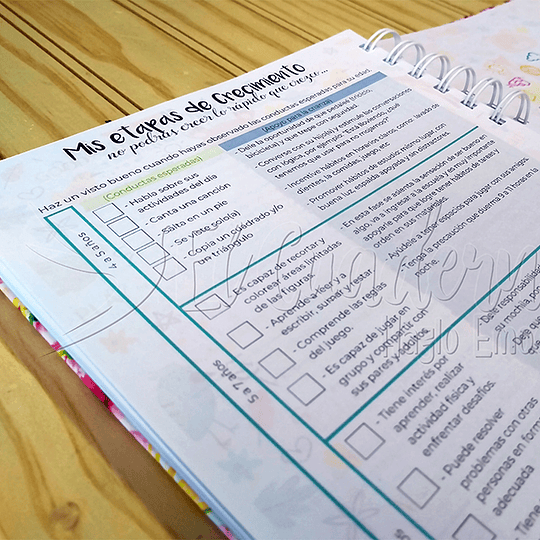 Mis etapas de Crecimiento
no podrás creer lo rápido que crezco...
Haz un visto bueno cuando hayas observado las conductas esperadas para su edad.
(Conductas esperadas)
(Apoyo para la crianza)
4 a 5 años
- Habla sobre sus
actividades del día
- Canta una canción
- Salta en un pie
- Se viste solo(a)
- Copia un cuadrado y/o
un triángulo
- Dele la oportunidad de que pedalee (triciclo,
bicicleta) y que trepe con seguridad.
- Converse con su hijo(a) y estimule las conversaciones
con lógica, por ejemplo, "Está lloviendo, ¿qué
tenemos que usar para no mojarnos?
- Incentive hábitos en horarios claros, como: lavado de
dientes, la comida, juego, etc.
- Promover hábitos de estudio mismo lugar con
buena luz, útiles aptos y acompañarlo
5 a 7 años
- Es capaz de recortar y
colorear áreas limitadas
de las figuras
- Aprende a leer y a
escribir, sumar y restar.
- Comprende las reglas
del juego
- Es capaz de jugar en
grupo y compartir con
sus pares y adultos.
- En esta fase se asienta la sensación de ser bueno en
algo, va a ingresar a la escuela y es muy importante
apoyarle para que logre tener hábitos de tareas y
orden en sus materiales.
- Ayúdele a tener espacios para jugar con los amigos.
- Tenga la precaución que duerma 9 a 11 horas en la
noche.
- Tiene interés por
aprender, realizar
actividad física y
enfrentar desafíos.
- Puede resolver
problemas con otras
personas en forma
adecuada
- Dele responsabilidad
su mochila,
Dele
que
Mi Cuaderno